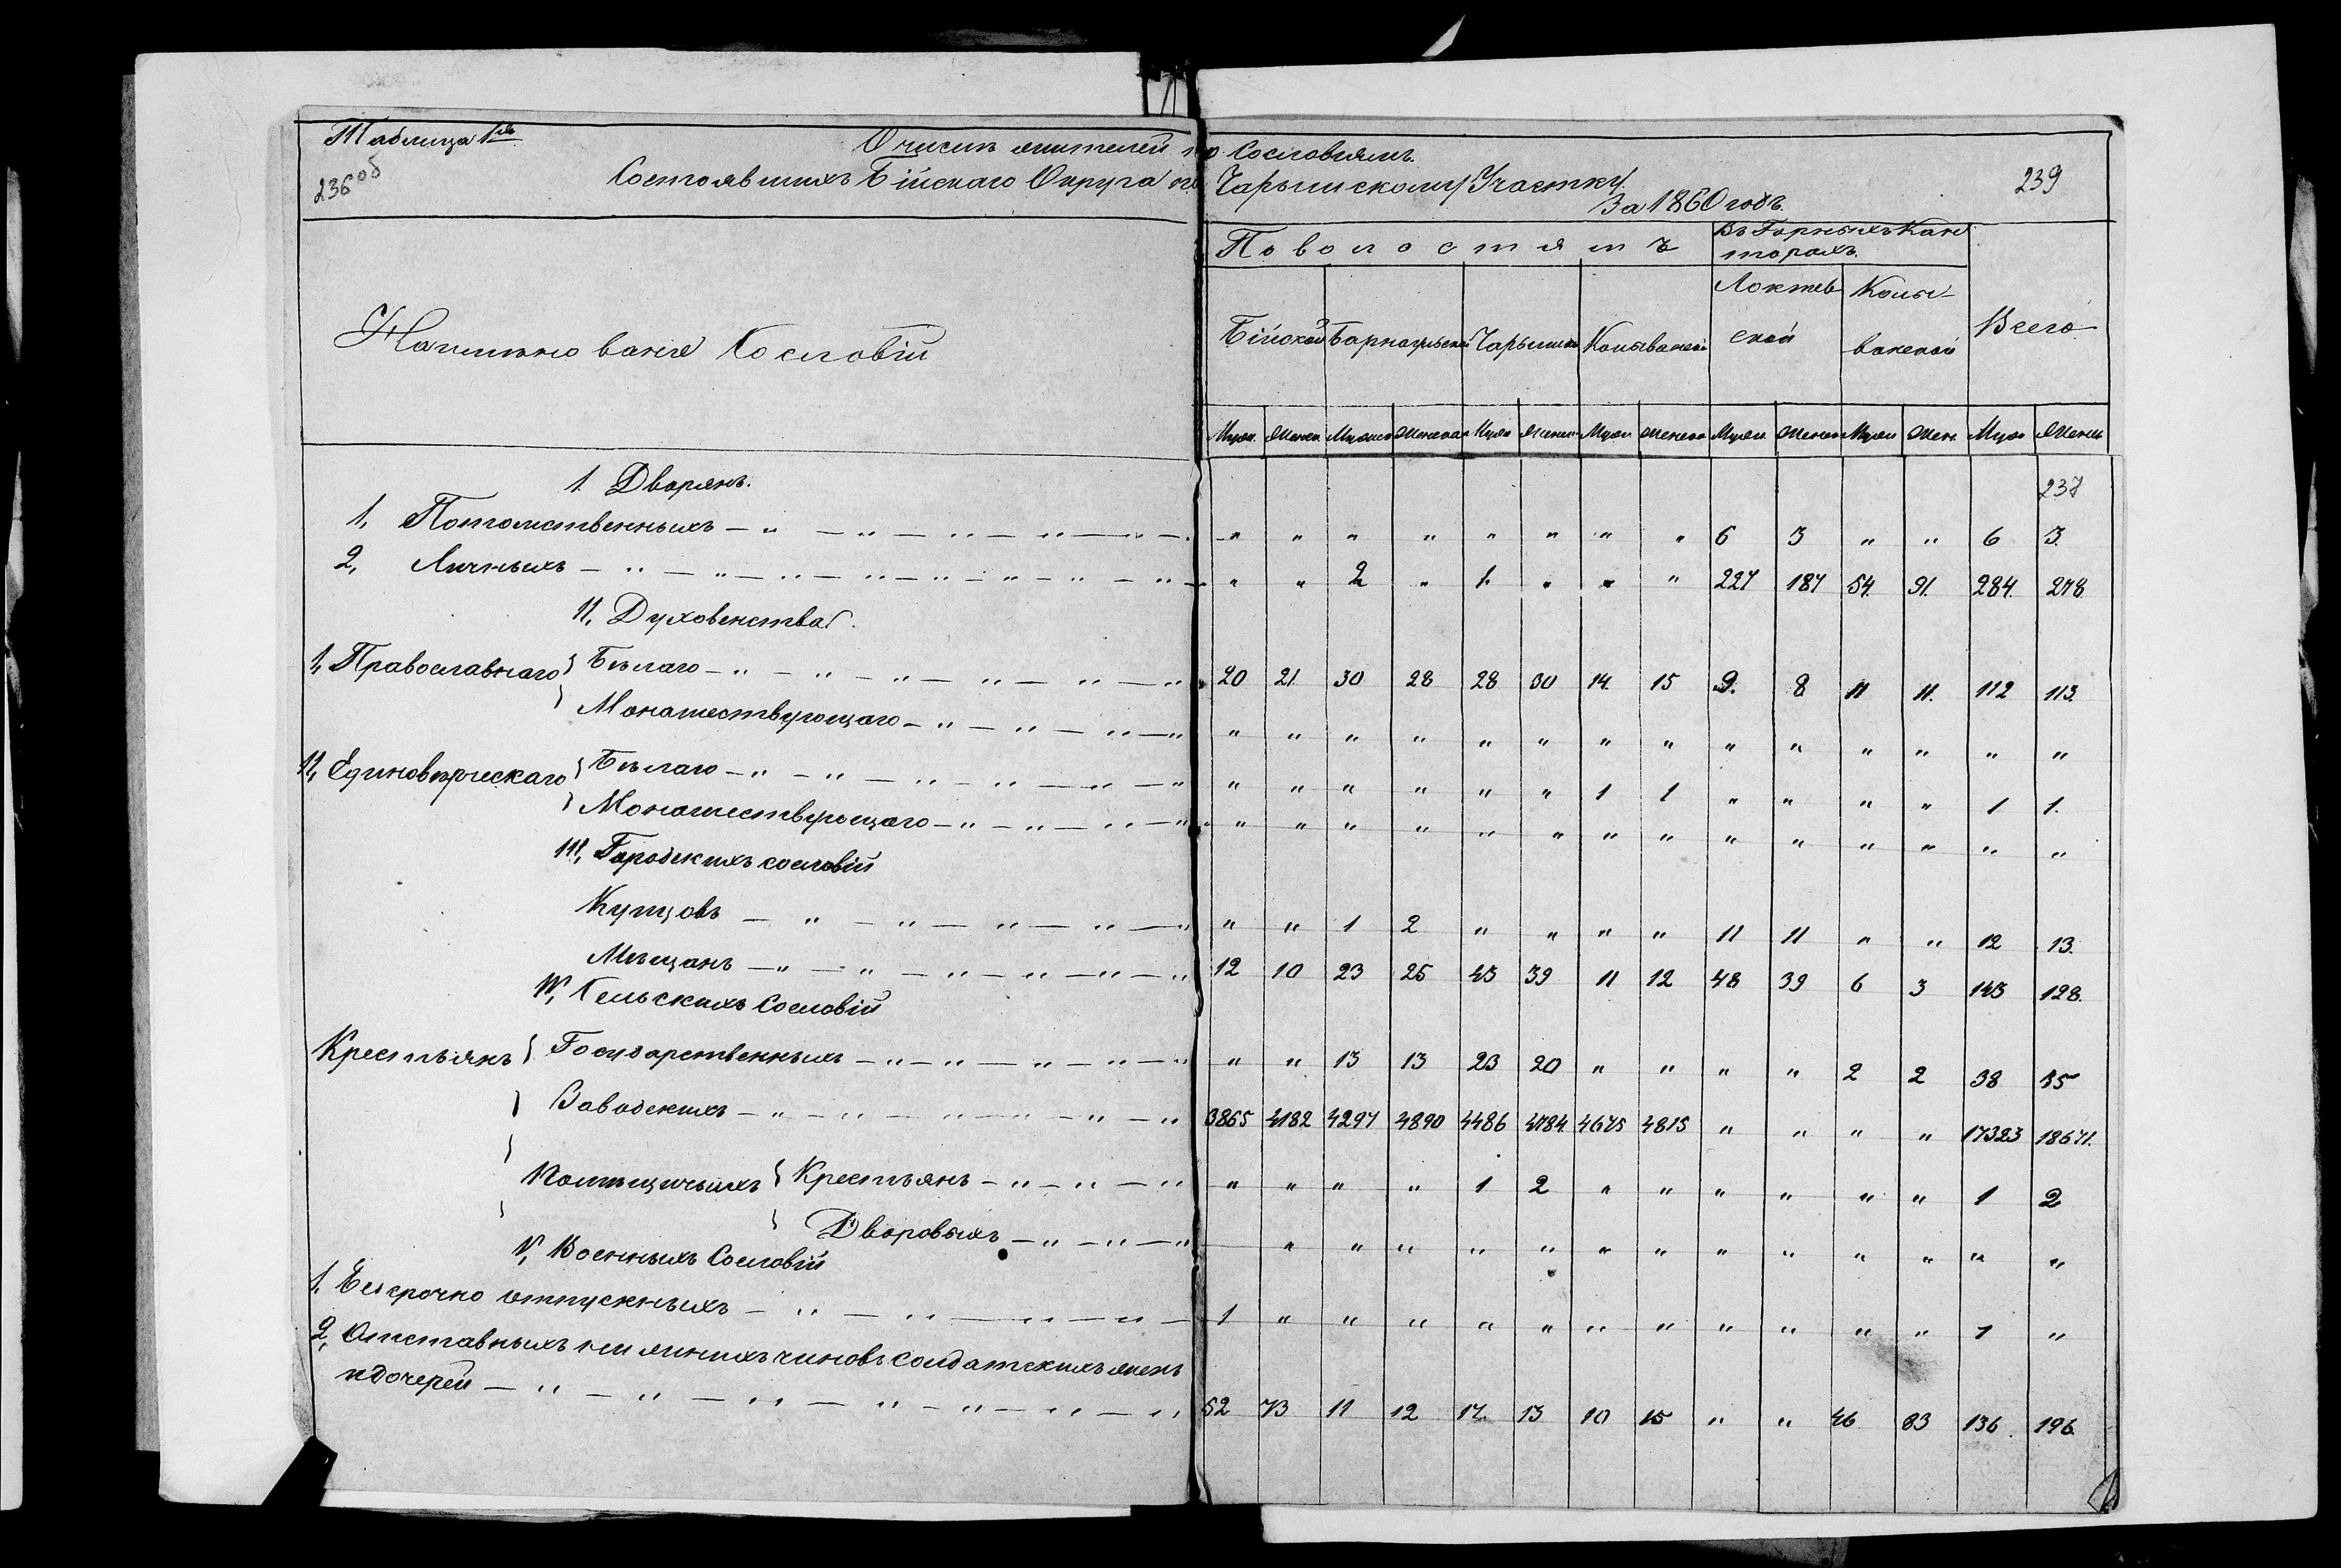 Таблица 1ая
О числѣ жителей по Сословіямъ.
236об
Состоявшихъ Бійскаго Округа по Чарышскому Участку
239
За 1860 годъ.
Наименованіе Сословій
По волостямъ
Въ Горныхъ Кан
торахъ.
Всего
Бійской Барнаульской Чарышск Колыванской
Локтев
ской
Колы-
ванской
Муж. Женск Мужск Женска Муж Женск Муж Женска Муж Женск Муж Жен. Муж Женск
1. Дворянъ.
237
1, Потомственныхъ — „ — „ — „ — „ — „ — „ „ „ „ „ „ „ „ 6 3 „ „ 6 3.
2, Личныхъ — „ — „ — „ — „ — „ — „ — „ — „ — „ „ 2 „ 1. „ „ „ 227 187 54. 91. 284. 278.
11, Духовенства.
1, Православнаго Бѣлаго — „ — „ — „ — „ — „ — „ 20 21 30 28 28 30 14. 15 9. 8 11 11. 112 113.
Монашествующаго — „ — „ — „ — „ „ „ „ „ „ „ „ „ „ „ „ „ „ „
11, Единовѣрческаго Бѣлаго — „ — „ — „ — „ — „ — „ „ „ „ „ „ „ 1 1 „ „ „ „ 1 1.
Монашествующаго — „ — „ — „ — „ „ „ „ „ „ „ „ „ „ „ „ „ „ „
111, Городскихъ сословій
Купцовъ — „ — „ — „ — „ — „ „ „ 1 2 „ „ „ „ 11 11 „ „ 12 13.
Мѣщанъ — „ — „ — „ — „ — „ — „ 12 10 23 25 43 39 11 12 48 39 6 3 143 128.
IV, Сельскихъ Сословій
Крестьянъ Государственныхъ — „ — „ — „ — „ — „ „ „ 13 13 23 20 „ „ „ „ 2 2 38 35
Заводскихъ — „ — „ — „ — „ — „ — „ 3865 4182 4297 4890 4486 4784. 4675 4815 „ „ „ „ 17323 18671.
Помѣщичьихъ Крестьянъ — „ — „ — „ „ „ „ „ 1 2 „ „ „ „ „ „ 1 2
Дворовыхъ — „ — „ — „ „ „ „ „ „ „ „ „ „ „ „ „ „
V, Военныхъ Сословій
1, Безсрочно отпускныхъ — „ — „ — „ — „ — 1 „ „ „ „ „ „ „ „ „ „ „ 1 „
2, Отставныхъ нижнихъ чиновъ солдатскихъ женъ
и дочерей — „ — „ — „ — „ — „ — „ — „ 52 73 11 12 17. 13 10 15 „ „ 46 83 136. 196.